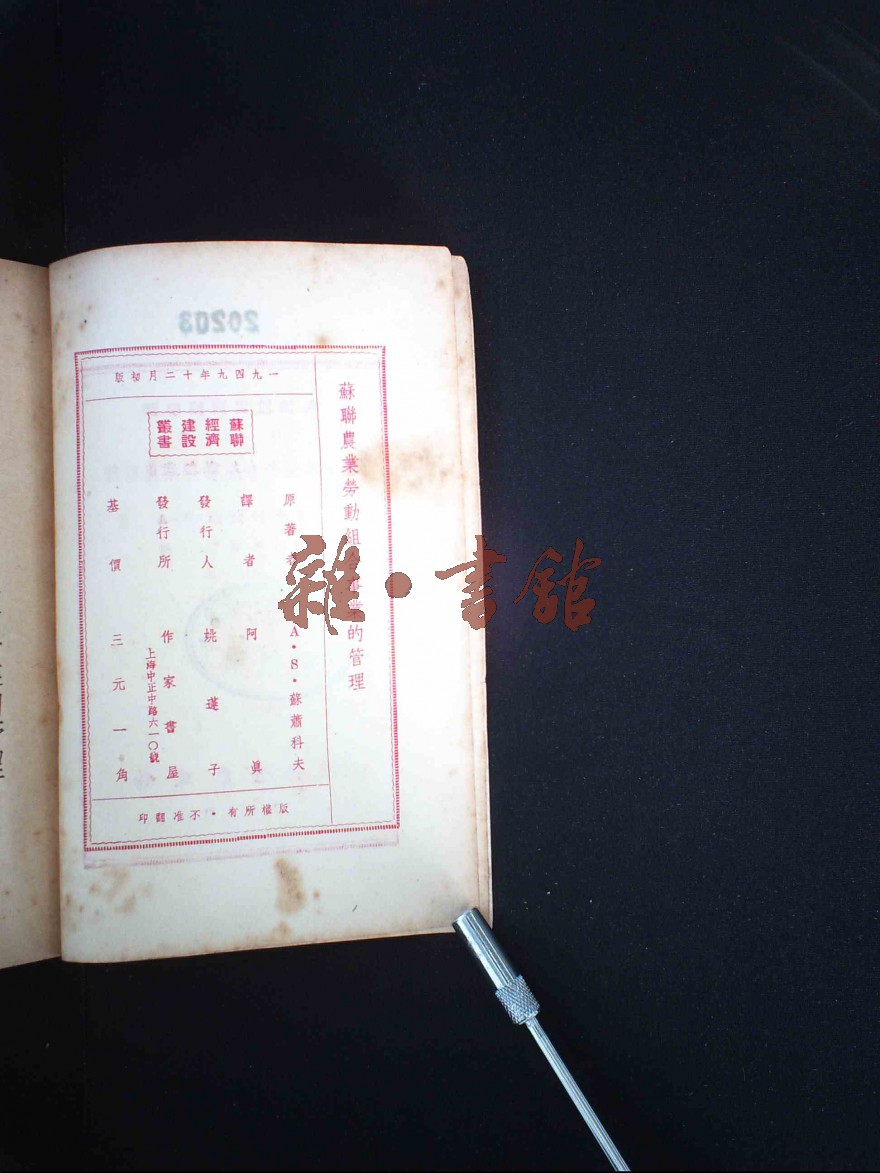 蘇聯農業勞動組 事業的管理
一九四九年十二月初版
蘇聯
經濟
建設
叢書
原著者 A·S·蘇蕭科夫
譯者 阿眞
發行人 姚蓬子
發行所 作家書屋
上海中正中路六一〇號
基價 三元一角
版權所有·不准翻印
20203
雜·書館